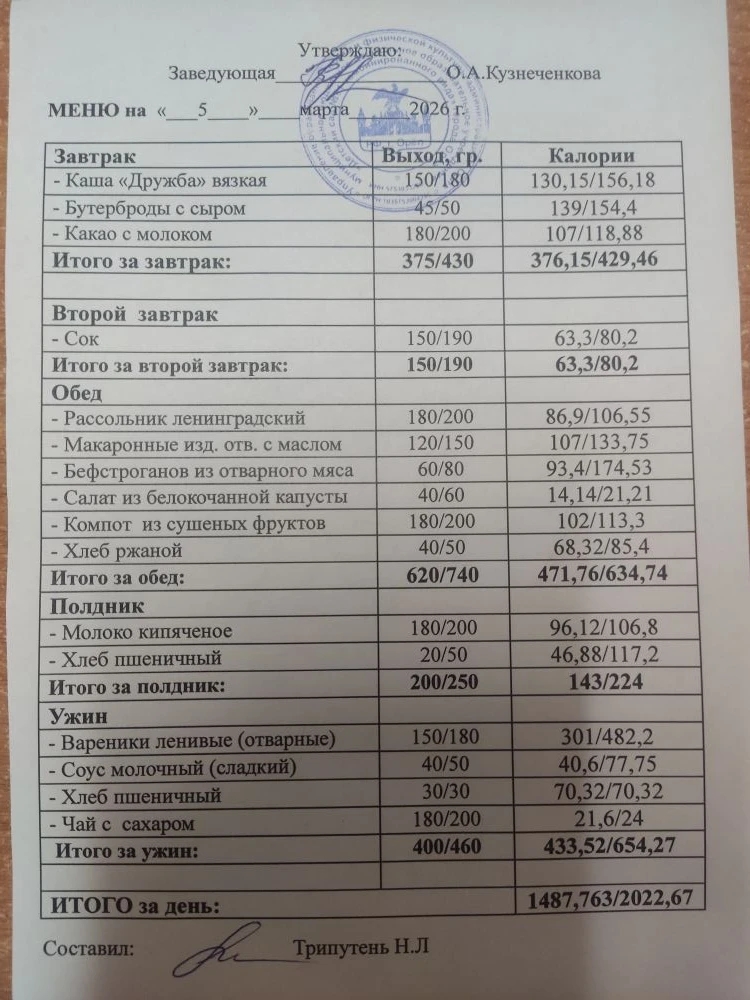 Утверждаю:
Заведующая О.А.Кузнеченкова
МЕНЮ на «___5____»____марта 2026 г.
Завтрак Выход, гр. Калории
- Каша «Дружба» вязкая 150/180 130,15/156,18
- Бутерброды с сыром 45/50 139/154,4
- Какао с молоком 180/200 107/118,88
Итого за завтрак: 375/430 376,15/429,46
Второй завтрак
- Сок 150/190 63,3/80,2
Итого за второй завтрак: 150/190 63,3/80,2
Обед
- Рассольник ленинградский 180/200 86,9/106,55
- Макаронные изд. отв. с маслом 120/150 107/133,75
- Бефстроганов из отварного мяса 60/80 93,4/174,53
- Салат из белокочанной капусты 40/60 14,14/21,21
- Компот из сушеных фруктов 180/200 102/113,3
- Хлеб ржаной 40/50 68,32/85,4
Итого за обед: 620/740 471,76/634,74
Полдник
- Молоко кипяченое 180/200 96,12/106,8
- Хлеб пшеничный 20/50 46,88/117,2
Итого за полдник: 200/250 143/224
Ужин
- Вареники ленивые (отварные) 150/180 301/482,2
- Соус молочный (сладкий) 40/50 40,6/77,75
- Хлеб пшеничный 30/30 70,32/70,32
- Чай с сахаром 180/200 21,6/24
Итого за ужин: 400/460 433,52/654,27
ИТОГО за день: 1487,763/2022,67
Составил: Трипутень Н.Л